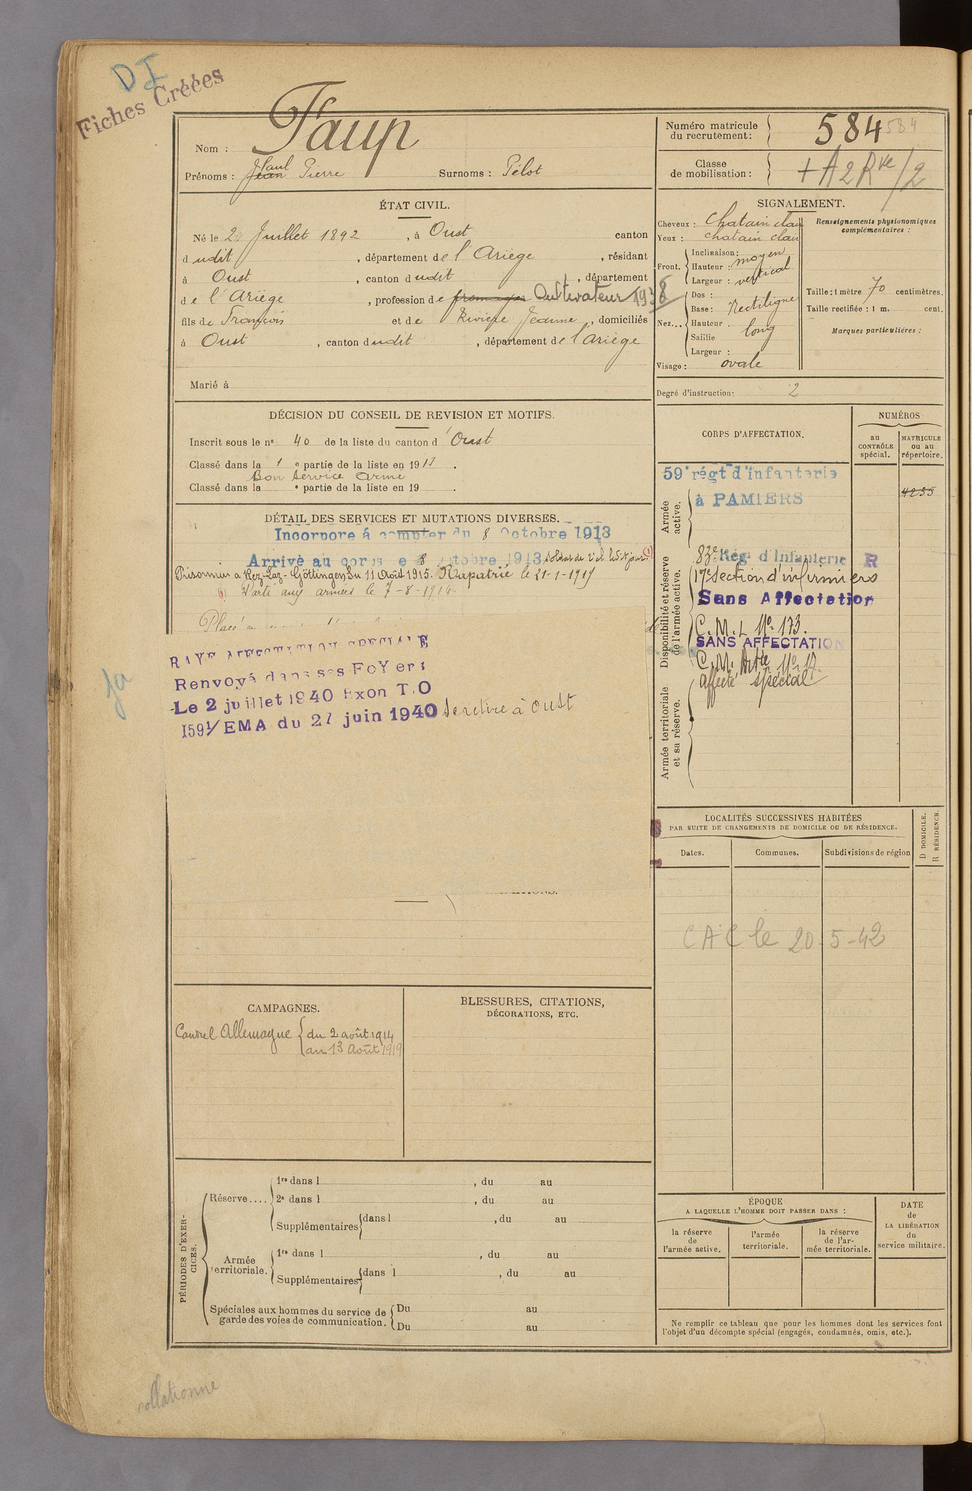 DI
Fiches Créées
Nom : Faup
Prénoms : Jean Paul Pierre Surnoms : Pélot
ÉTAT CIVIL.
Né le 2 Juillet 1892, à Oust canton
dudit, département de l'Ariège, résidant
à Oust, canton dudit, département
de l'Ariège, profession de fromager Cultivateur 1938
fils de François et de Rivière Jeanne, domiciliés
à Oust, canton dudit, département de l'Ariège
Marié à
DÉCISION DU CONSEIL DE REVISION ET MOTIFS.
Inscrit sous le no 40 de la liste du canton d'Oust
Classé dans la 1e partie de la liste en 1913.
Bon Service Armé
Classé dans la e partie de la liste en 19 .
DÉTAIL DES SERVICES ET MUTATIONS DIVERSES.
Incorporé à compter du 8 Octobre 1913
Arrivé au corps le 8 octobre 1913. Soldat de 2e cl. le dt jour (1)
Prisonnier à Göttingen du 11 Août 1915. Rapatrié le 11-1-1919
(1) Parti aux armées le 7-8-1914.
Placé
RAYE AFFECTATION SPECIALE
Renvoyé dans ses FoYers
Le 2 juillet 1940 Exon T.O
1591/EMA du 27 juin 1940 Se retire à Oust
CAMPAGNES.
Contre l'Allemagne du 2 août 1914
au 13 Août 1919
BLESSURES, CITATIONS,
DÉCORATIONS, ETC.
PÉRIODES D'EXERCICES.
Réserve.... 1re dans l , du au
2e dans l , du au
Supplémentaires dans l , du au
Armée territoriale. 1re dans l , du au
Supplémentaires dans l , du au
Spéciales aux hommes du service de garde des voies de communication. Du au
Du au
collationné
Numéro matricule du recrutement : 584 584
Classe de mobilisation : + A 2 Rve/2
SIGNALEMENT.
Cheveux : Chatain clair
Yeux : chatain clair
Front. Inclinaison : moyen
Hauteur :
Largeur : vertical
Nez... Dos :
Base : Rectiligne
Hauteur :
Saillie long
Largeur :
Visage : ovale
Renseignements physionomiques complémentaires :
Taille : 1 mètre 70 centimètres.
Taille rectifiée : 1 m. cent.
Marques particulières :
Degré d'instruction : 2
CORPS D'AFFECTATION.
NUMÉROS
au CONTRÔLE spécial.
MATRICULE ou au répertoire.
Armée active.
59e régt d'infanterie
à PAMIERS
4255
Disponibilité et réserve de l'armée active.
83e Rég. d'Infanterie R
17e Section d'infirmiers
Sans Affectation
C.M.I. No 173.
SANS AFFECTATION
C.M. Artie No 17
affecté spécial
Armée territoriale et sa réserve.
LOCALITÉS SUCCESSIVES HABITÉES
PAR SUITE DE CHANGEMENTS DE DOMICILE OU DE RÉSIDENCE.
Dates. Communes. Subdivisions de région
D DOMICILE. R RÉSIDENCE.
CAC le 20-5-42
ÉPOQUE
A LAQUELLE L'HOMME DOIT PASSER DANS :
la réserve de l'armée active.
l'armée territoriale.
la réserve de l'armée territoriale.
DATE de LA LIBÉRATION du service militaire.
Ne remplir ce tableau que pour les hommes dont les services font
l'objet d'un décompte spécial (engagés, condamnés, omis, etc.).